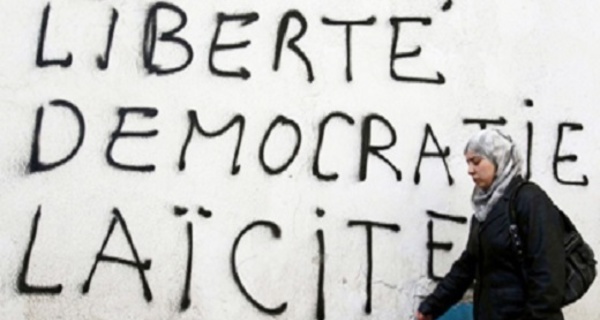 LIBERTÉ
DEMOCRATIE
LAÏCITE